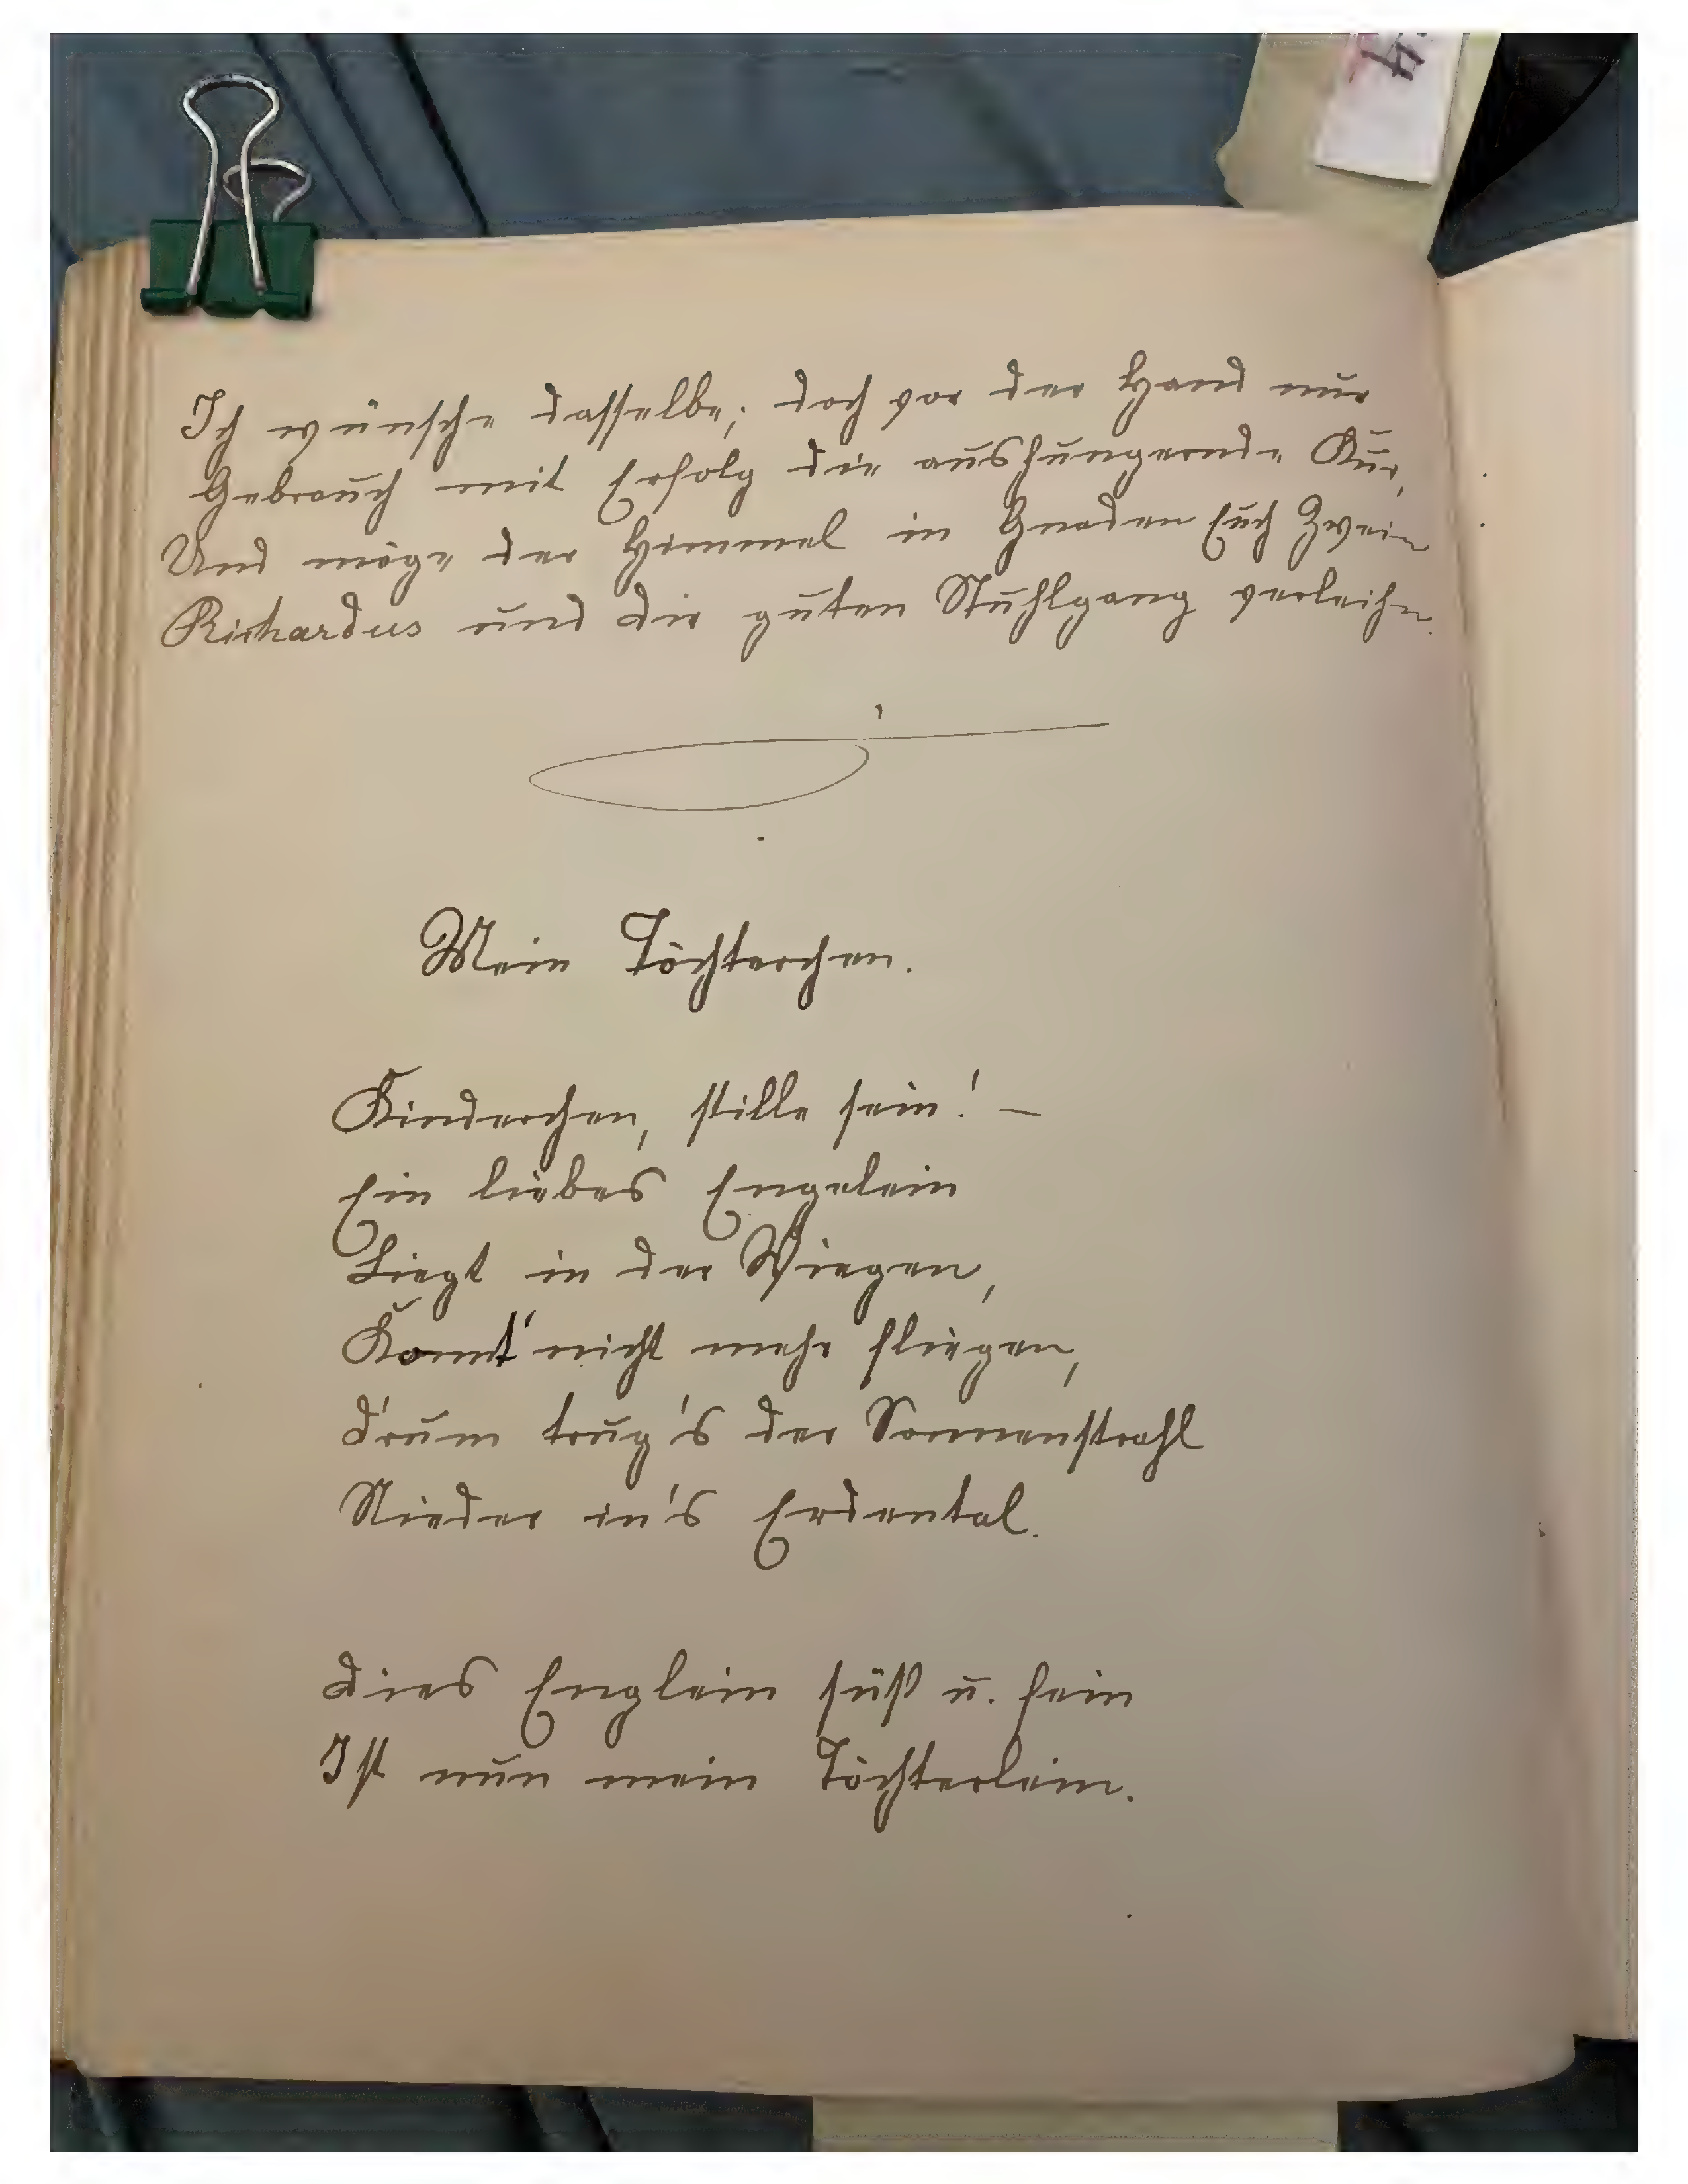 Ich wünsche dasselbe; doch vor der Hand nur
Gebrauch mit Erfolg die aushungernde Kur,
Und möge der Himmel in Gnaden Euch Zwein
Richardus und dir guten Stuhlgang verleihn.
Mein Töchterchen.
Kinderchen, stille sein! —
Ein liebes Engelein
Liegt in der Wiegen,
Konnt' nicht mehr fliegen,
D'rum trug's der Sonnenstrahl
Nieder in's Erdental.
Dies Englein süß u. fein
Ist nun mein Töchterlein.